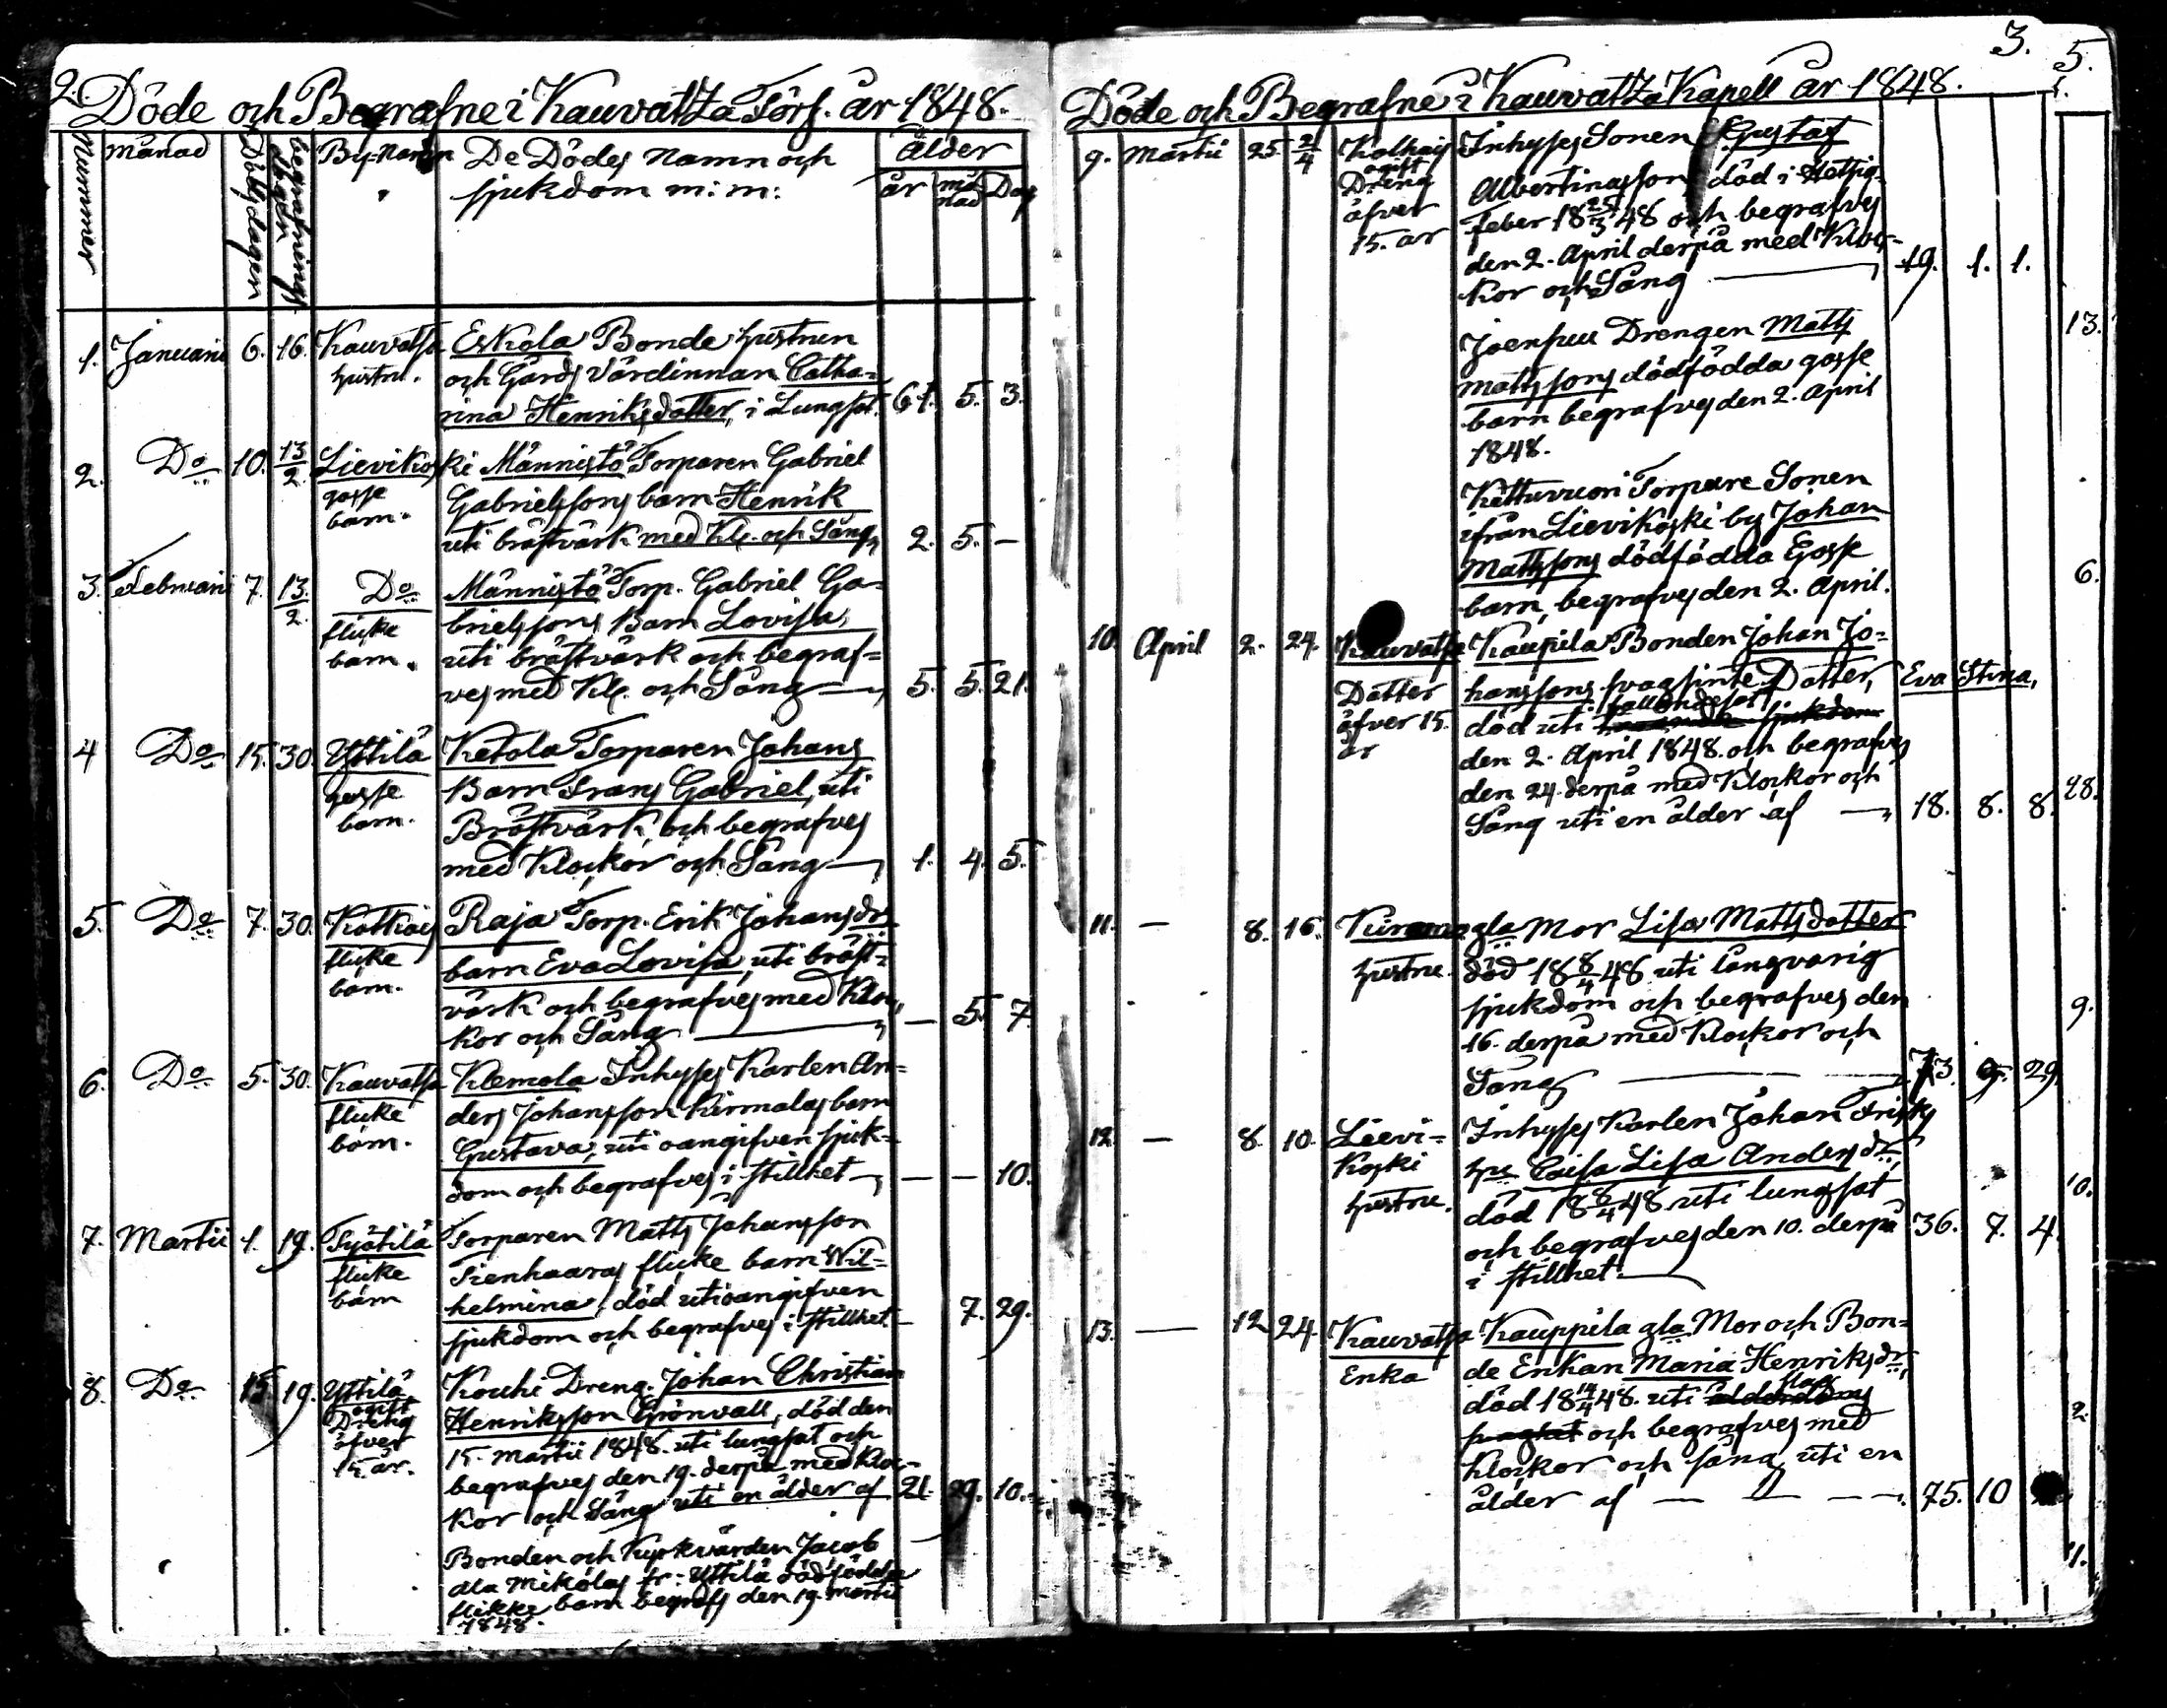 2.
Döde och Begrafne i Kauvatza Förs. år 1848.
Nummer
Månad
Dödsdagen
begrafnings dagen
By-Namn
De Dödes Namn och
sjukdom m: m:
Ålder
år
månad
Dag
1. Januarii 6. 16. Kauvatsa Eskola Bonde hustrun
hustru. och Gårds Värdinnan Catha=
rina Henriksdotter, i Lungsot. 61. 5. 3.
2. Do 10. 13/2 Lievikoski Männistö Torparen Gabriel
gosse Gabrielssons barn Henrik
barn. uti bröstvärk med Kl. och Sång, 2. 5. —
3. Februarii 7. 13/2. Do Männistö Torp. Gabriel Ga=
flicke brielssons Barn Lovisa,
barn. uti bröstvärk och begraf=
ves med Kl. och Sång — 5. 5. 21.
4 Do 15. 30. Yttilä Ketola Torparen Johans
gosse Barn Frans Gabriel, uti
barn. Bröstvärk och begrafves
med Klockor och Sång — 1. 4. 5.
5. Do 7. 30. Raja Torp. Erik Johans dr
flicke barn Eva Lovisa, uti bröst=
barn. värk och begrafves med Kloc-
kor och Sång — — 5. 7.
6. Do 5. 30. Kauvatsa Klemola Inhyses Karlen An=
flicke ders Johansson Kirmalas barn
barn. Gustava, uti oangifven sjuk=
dom och begrafves i stillhet — — — 10.
7. Martii 1. 19. Torparen Matts Johansson
flicke Tienhaaras flicke barn Wil=
barn helmina, död uti oangifven
sjukdom och begrafves i stillhet — 7. 29.
8. Do 15. 19. Yttilä Kouhi Dreng. Johan Christian
ogift
Dreng Henriksson Grönvall, död den
öfver 15. Martii 1848. uti lungsot och
15. år. begrafves den 19. derpå med Kloc-
kor och Sång uti en ålder af 21. 29. 10.
Bonden och Kyrkvärden Jacob
Mikolas fr: Yttilä dödfödda
flicke barn begrafs den 19. Martii
1848.
3.
5.
Döde och Begrafne i Kauvatza Kapell år 1848.
9. Martii 25. 2/4 Inhyses Sonen Gustaf
ogift
Dreng Albertinasson, död i Hetsig-
öfver Feber 18 25/3 48 och begrafves
15. år den 2. April derpå med Kloc-
kor och Sång — 19. 1. 1.
Joensuu Drengen Matts
Mattssons dödfödda gosse
barn begrafves den 2. April
1848.
13.
Kettuvuori Torpare Sonen
ifrån Lievikoski by Johan
Mattssons dödfödda Gosse
barn, begrafves den 2. April.
6.
10. April 2. 24. Kauvatsa Kaupila Bonden Johan Jo=
Dotter hanssons svagsinte Dotter, Eva Stina,
öfver 15. död uti fallandesot
år den 2. April 1848. och begrafves
den 24. derpå med Klockor och
Sång uti en ålder af — 18. 8. 8.
28.
11. — 8. 16. gla Mor Lisa Mattsdotter
hustru. död 18 8/4 48 uti långvarig
sjukdom och begrafves den
16. derpå med Klockor och
Sång — 73. 9. 29.
9.
12. — 8. 10. Lievi= Inhyses Karlen Johan Frisks
koski hu Caisa Lisa Anders dr,
hustru. död 18 8/4 48 uti lungsot
och begrafves den 10. derpå 36. 7. 4.
i stillhet. —
10.
13. — 12 24. Kauvatsa Kauppila gla Mor och Bon=
Enka de Enkan Maria Henriks dr,
död 18 48. uti slag ålderdoms
svaghet och begrafves med
Klockor och sång uti en
ålder af — 75. 10
2.
11.